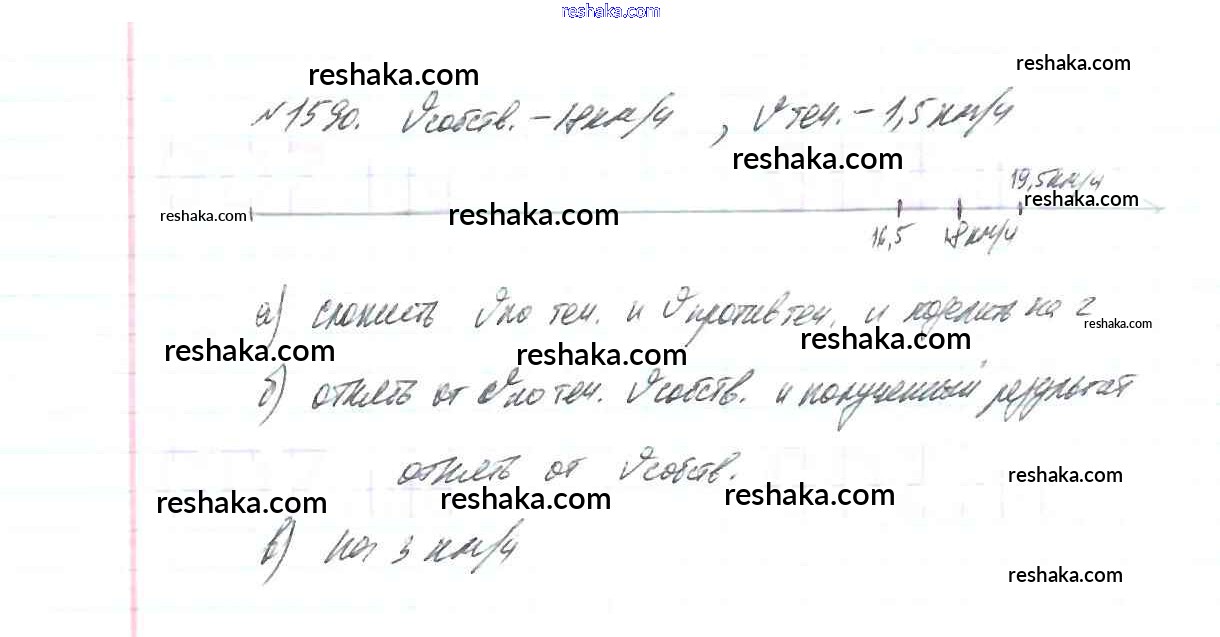 reshaka.com
reshaka.com reshaka.com
№1590. Vсобств. – 18км/ч , V теч. – 1,5 км/ч
reshaka.com
19,5км/ч
reshaka.com reshaka.com reshaka.com
16,5 18км/ч
а) сложить V по теч. и V против теч. и поделить на 2
reshaka.com reshaka.com reshaka.com reshaka.com
б) отнять от V по теч. Vсобств. и полученный результат
отнять от Vсобств.
reshaka.com reshaka.com reshaka.com reshaka.com
в) на 3 км/ч
reshaka.com